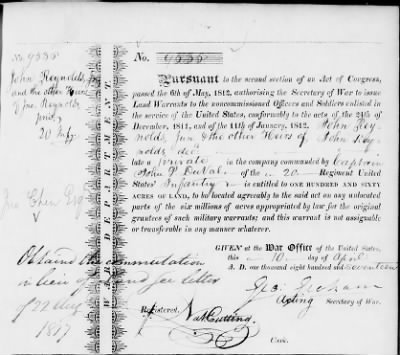 No. 9535
John Reynolds, Jr
and the other Heirs
of Jno. Reynolds
priv.
20 Infy
Jno Chen Esq
Obtains the commutation
in lieu of land see letter
of 22 Aug
1817
WAR DEPARTMENT.
No. 9535
Pursuant to the second section of an Act of Congress,
passed the 6th of May, 1812, authorising the Secretary of War to issue
Land Warrants to the noncommissioned Officers and Soldiers enlisted in
the service of the United States, conformably to the acts of the 24th of
December, 1811, and of the 11th of January, 1812. John Rey-
nolds, Jun & the other Heirs of John Rey-
nolds, dec
late a private in the company commanded by Captain
John P. DuVal of the 20 Regiment United
States' Infantry is entitled to ONE HUNDRED AND SIXTY
ACRES OF LAND, to be located agreeably to the said act on any unlocated
parts of the six millions of acres appropriated by law for the original
grantees of such military warrants; and this warrant is not assignable
or transferable in any manner whatever.
GIVEN at the War Office of the United States,
this 10 day of April
A. D. one thousand eight hundred and seventeen
Geo: Graham
Acting Secretary of War.
Registered.
Nat Cutting
Clerk.